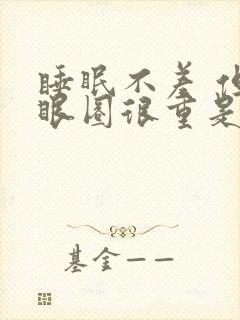 睡眠不差
眼圈很重是
基金一一